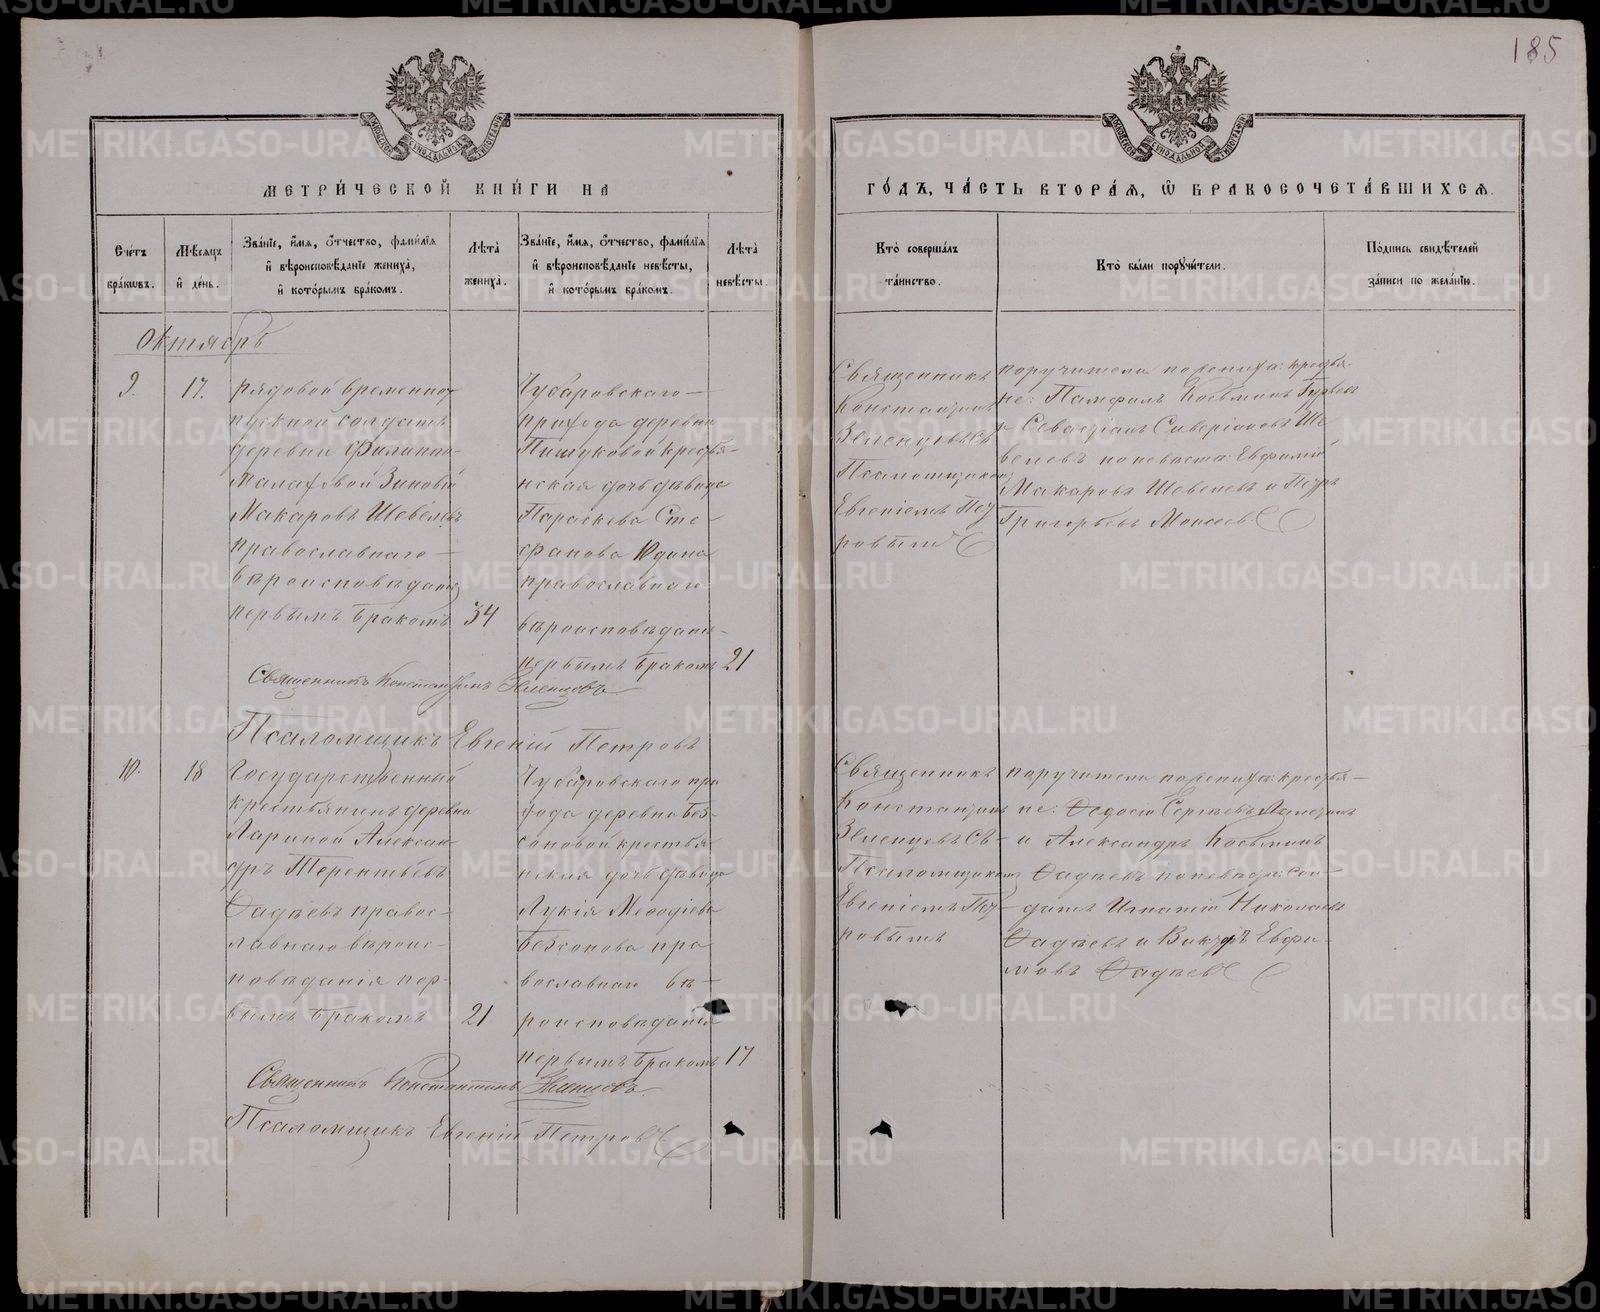 185
МЕТРИ́ЧЕСКОЙ КНИ́ГИ НА
ГО́ДЪ, ЧА́СТЬ ВТОРА́Я, Ѿ БРАКОСОЧЕТА́ВШИХСЯ.
Сче́тъ бра́кѡвъ.
Мѣ́сяцъ и҆ де́нь.
Зва́нїе, и҆́мѧ, ѻ҆́тчество, фами́лїѧ
и҆ вѣроисповѣ́данїе жениха̀,
и҆ кото́рымъ бра́комъ.
Лѣта̀ жениха̀.
Зва́нїе, и҆́мѧ, ѻ҆́тчество, фами́лїѧ
и҆ вѣроисповѣ́данїе невѣ́сты,
и҆ кото́рымъ бра́комъ.
Лѣта̀ невѣ́сты.
Кто̀ соверша́лъ
та́инство.
Кто̀ бы́ли порꙋчи́тели.
По́дпись свидѣ́телей
за́писи по жела́нїю.
Октябрь
9.
17.
рядовой временноот
пускной солдатъ
деревни Филиппо-
Малаховой Зиновій
Макаровъ Шевелевъ
православнаго
вѣроисповѣданія
первымъ бракомъ
34
Чубаровскаго
прихода деревни
крестья-
нская дочь дѣвица
Параскева Сте-
фанова Юдина
православнаго
вѣроисповѣдані-
первымъ бракомъ
21
Священникъ
Константинъ
Зеленцовъ Съ
Псаломщикомъ
Евгеніемъ Пет
ровымъ
поручители по женихѣ: крестья
не: Памфилъ Косьминъ Гурьевъ
и Севастіанъ Сиверіановъ Ше
велевъ по невѣстѣ: Евфимій
Макаровъ Шевелевъ и Петръ
Григорьевъ Моисеевъ
Священникъ Константинъ Зеленцовъ
Псаломщикъ Евгеній Петровъ
10.
18
Государственный
крестьянинъ деревни
Лариной Алексан-
дръ Терентьевъ
Ѳадѣевъ правос-
лавнаго вѣроис-
повѣданія пер-
вымъ бракомъ
21
Чубаровскаго при
хода деревни Без-
соновой крестья
нская дочь дѣвица
Лукія Меѳодіева
Безсонова пра
вославнаго вѣ-
роисповѣданія
первымъ бракомъ
17
Священникъ
Константинъ
Зеленцовъ Съ
Псаломщикомъ
Евгеніемъ Пет
ровымъ
поручители по женихѣ: крестья-
не: Ѳедосій Сергѣевъ
и Александръ Косьминъ
Ѳадѣевъ по невѣстѣ: сол-
датъ Игнатій Николаевъ
Ѳадѣевъ и Викторъ Евфи-
мовъ Ѳадѣевъ
Священникъ Константинъ Зеленцовъ
Псаломщикъ Евгеній Петровъ
METRIKI.GASO-URAL.RU